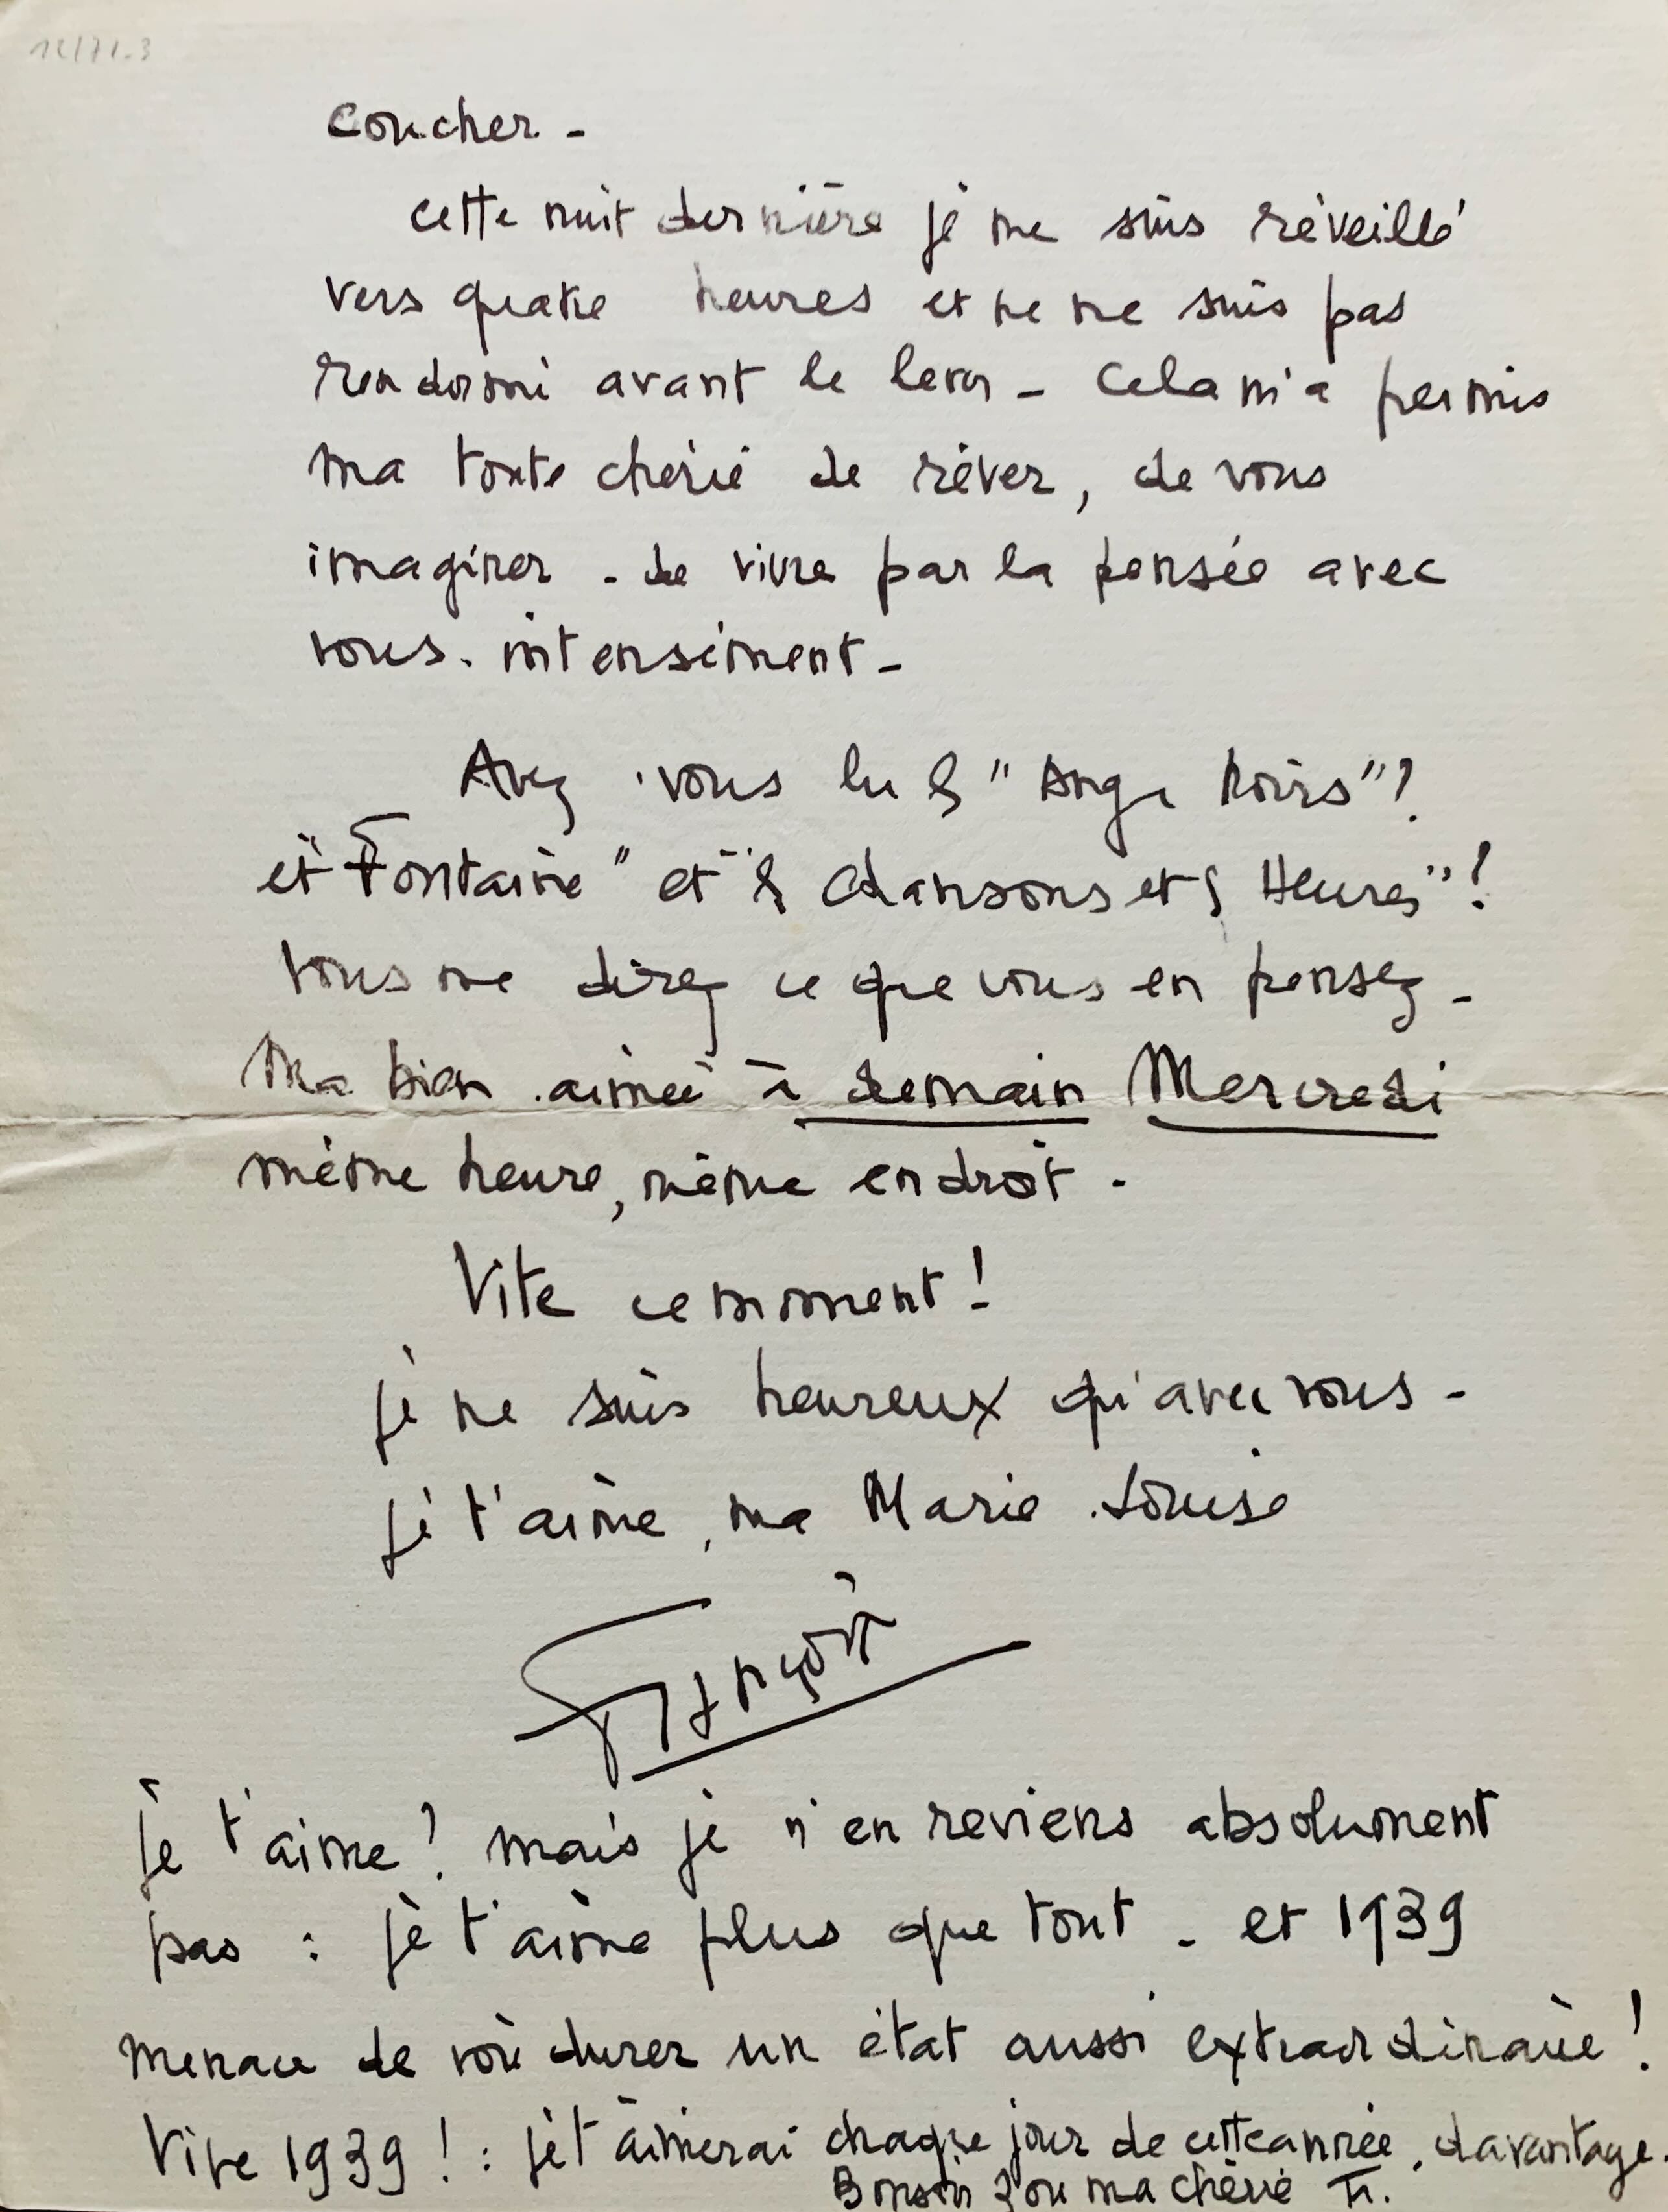 coucher -
cette nuit dernière je me suis réveillé
vers quatre heures et ne me suis pas
rendormi avant le lever - Cela m'a permis
ma toute chérie de rêver, de vous
imaginer - de vivre par la pensée avec
vous. intensément -
Avez vous lu les "Ange Noirs"?
et "Fontaine" et "les chansons et les Heures"!
vous me direz ce que vous en pensez -
Ma bien aimée à demain Mercredi
même heure, même endroit -
Vite ce moment!
je ne suis heureux qu'avec vous -
je t'aime, ma Marie Louise
François
je t'aime! mais je n'en reviens absolument
pas : je t'aime plus que tout - et 1939
menace de voir durer un état aussi extraordinaire!
Vive 1939! : je t'aimerai chaque jour de cette année, davantage.
Bonsoir Zou ma chérie Fr.